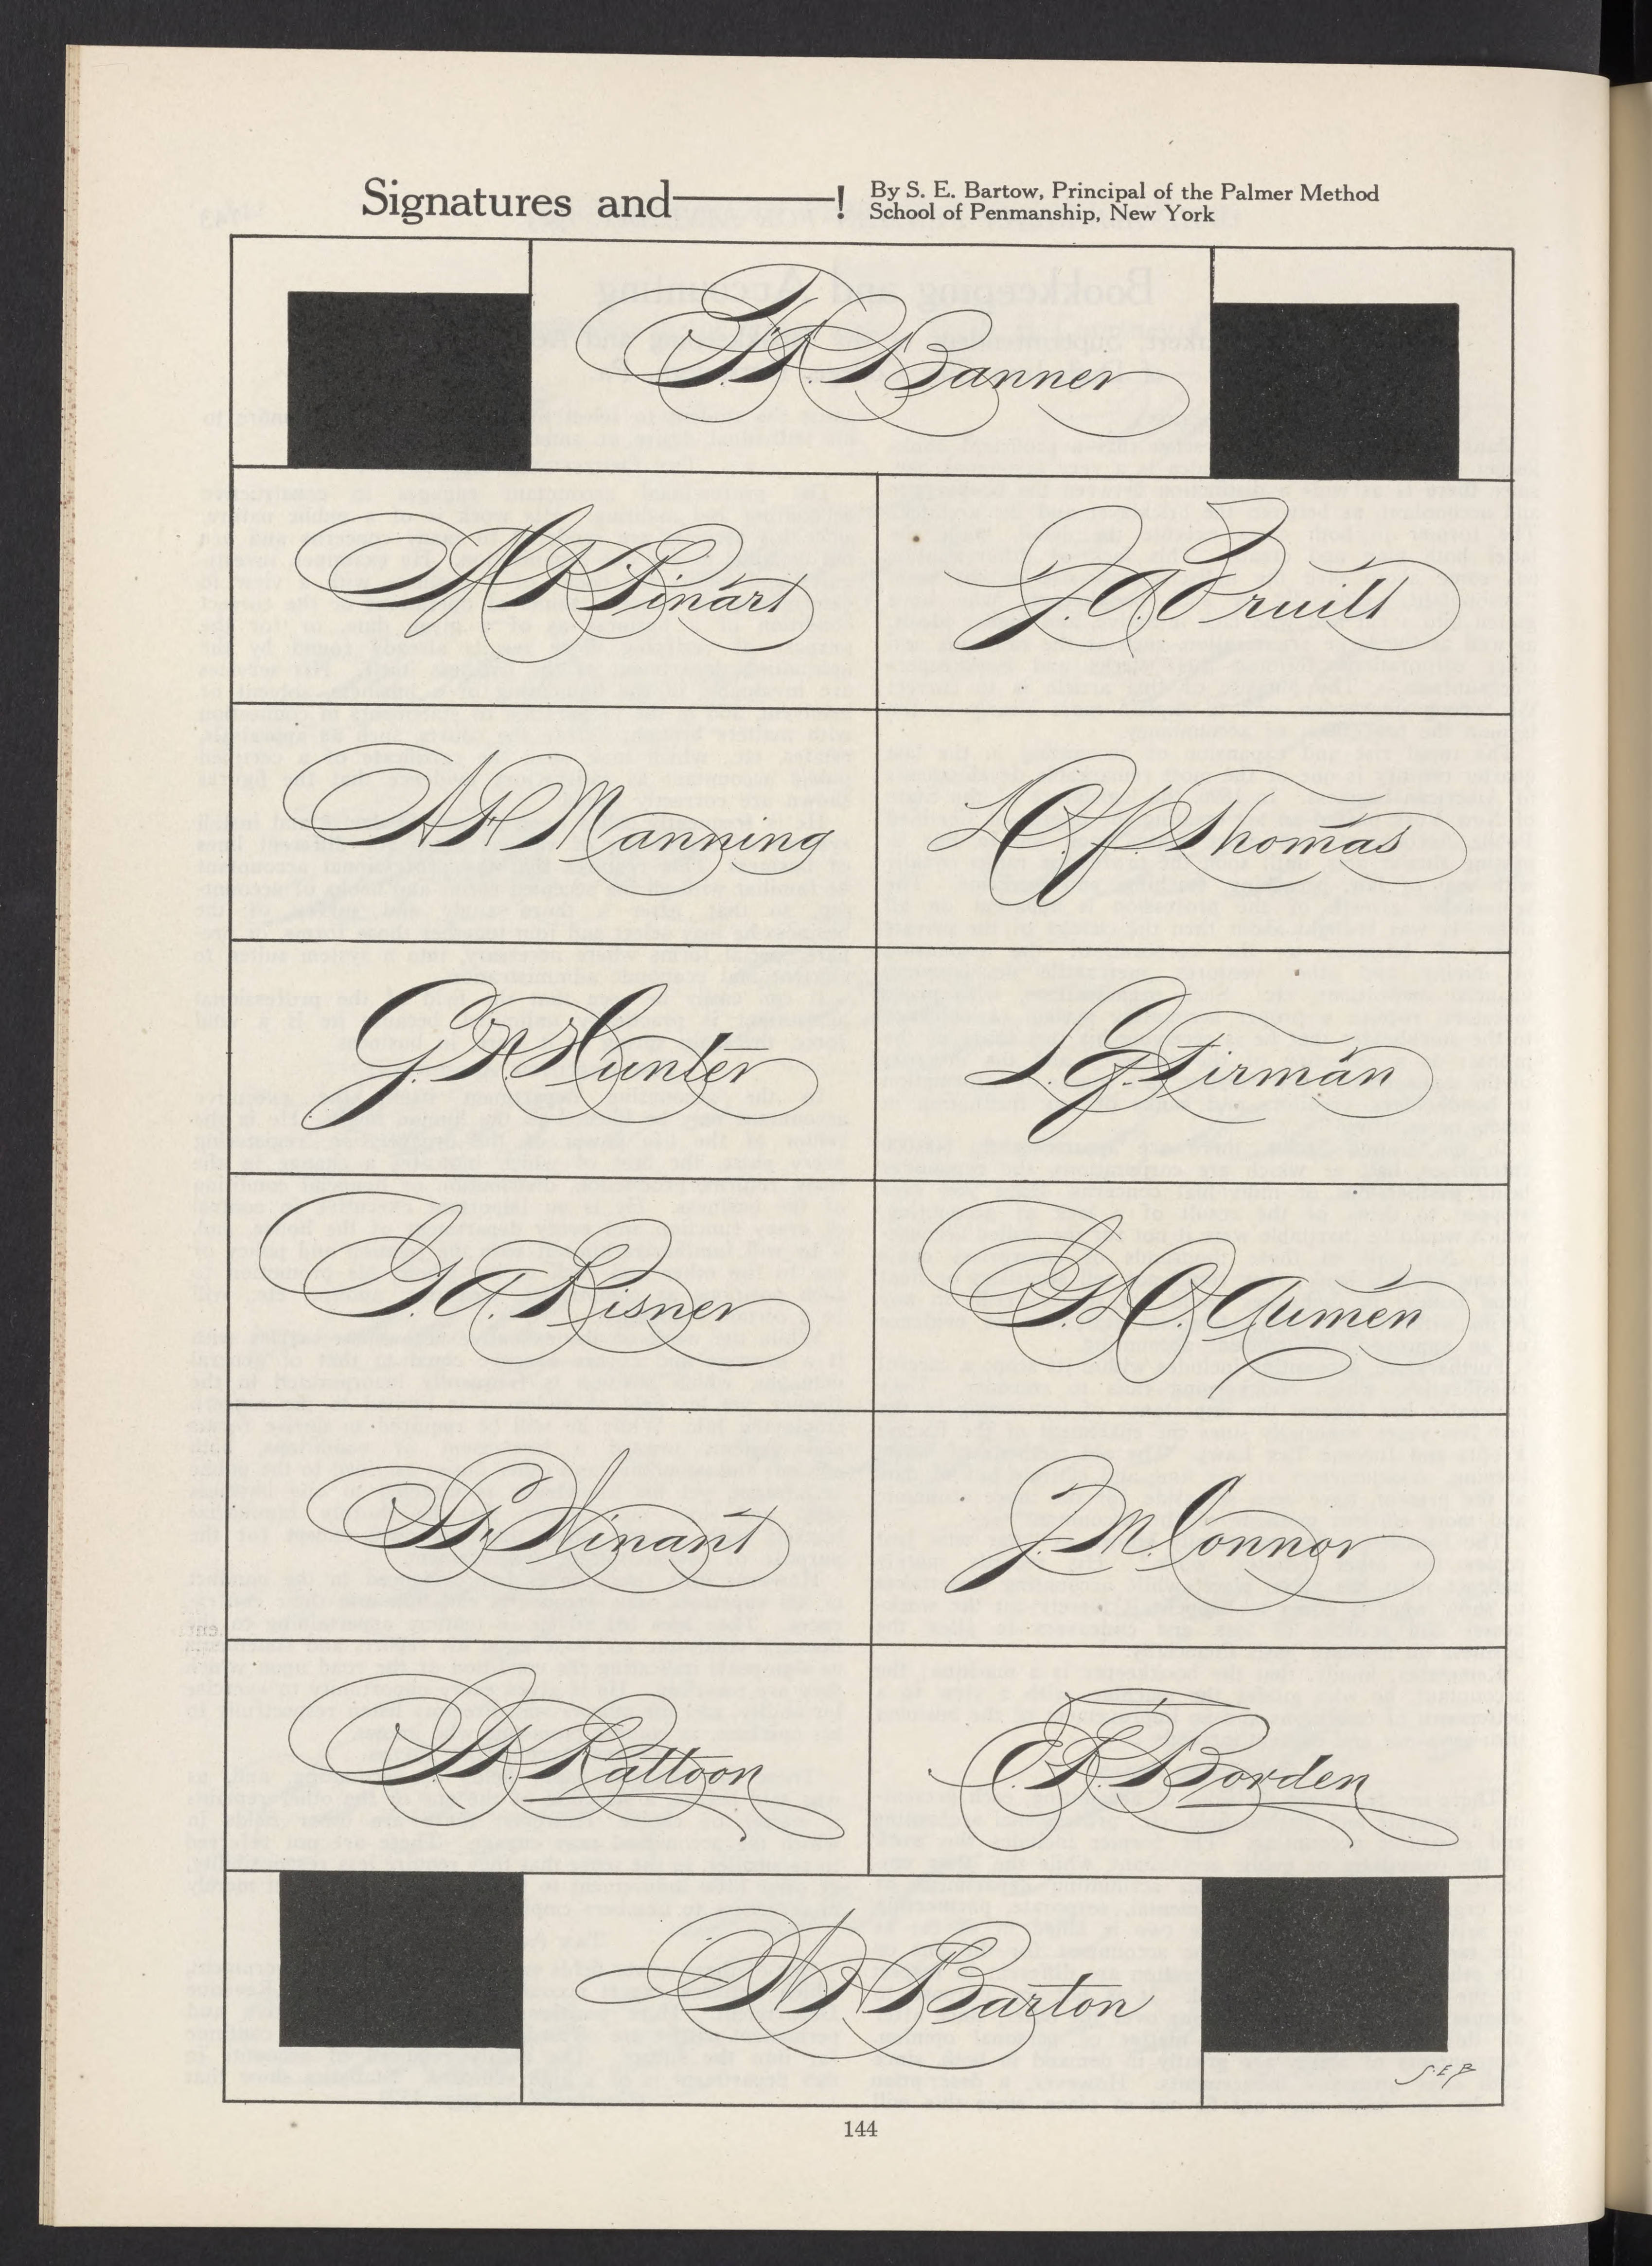 Signatures and ——— !
By S. E. Bartow, Principal of the Palmer Method
School of Penmanship, New York
Banner
Pinart
J. A. Pruitt
A H Manning
Thomas
G. Hunter
L. G. Firman
G. A. Risner
Aumen
Winant
J. M. Connor
Rattoon
E. R. Borden
Barton
S.E.B
144